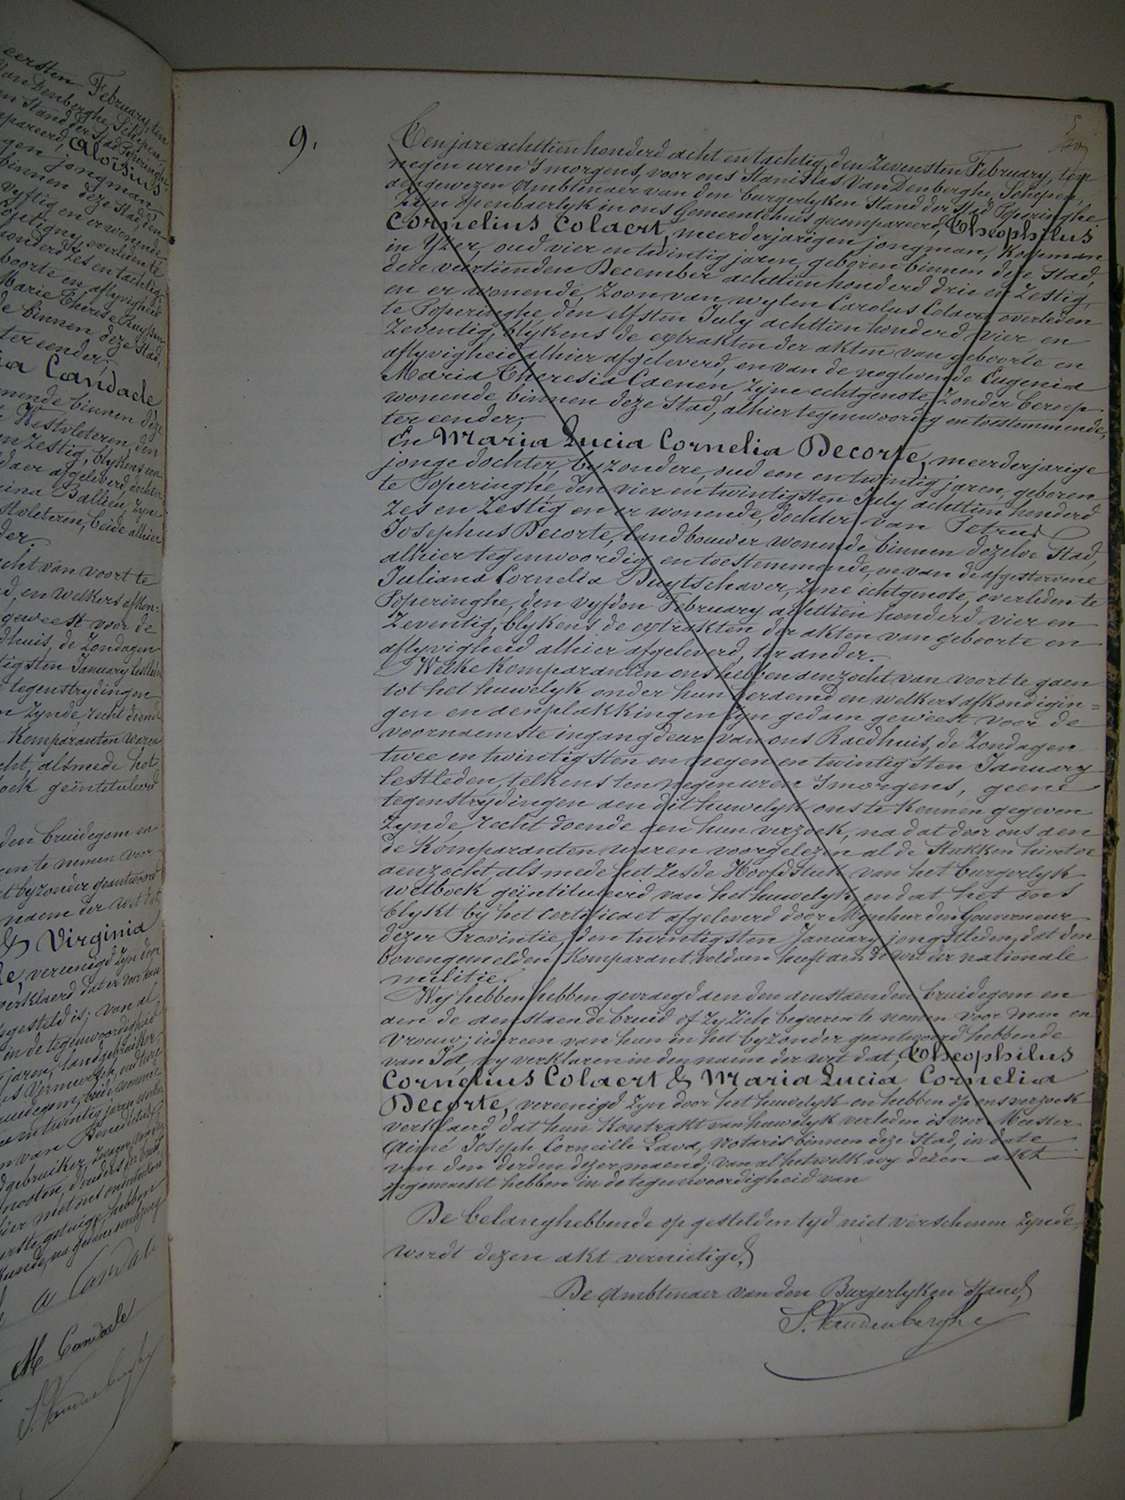 eersten February, ten
Van Denberghe, Schepen,
en Stand der Stad Poperinghe
mpareerd, Aloisius
gen jongman,
binnen deze Stad, den
vyftig en er wonende
Popeligne, overleden te
honderd zes en tachtig
boorte en aflyvigheid
Marie Therese
de binnen deze Stad,
ter eender;
ia Candaele
nende binnen deze
te Westvleteren, den
en Zestig, blykens
daer afgeleverd, dochter
rina Ballieu, zyne
stvleteren, beide alhier
der.
cht van voort te
d, en welkers afkon=
geweest voor de
dhuis, de Zondagen
tigsten January lestleden
tegenstrydingen
n Zynde, recht doende
Komparanten waren
cht, alsmede het
oek geïntituleerd
den bruidegom en
en te nemen voor
t byzonder geantwoord
naem der wet dat
& Virginia
le, vereenigd zyn door
verklaerd dat er voor hun
gesteld is; van al
in de tegenwoordigheid
A Candaele
M Candaele
S. Vandenberghe
9.
Ten jare achttien honderd acht en tachtig, den Zevensten February, ten
negen uren 's morgens, voor ons Stanislas Van Denberghe, Schepen,
aengewezen Amblenaer van den burgerlyken Stand der Stad Poperinghe
zyn openbaerlyk in ons Gemeentehuis gecompareerd, Theophilus
Cornelius Colaert, meerderjarigen jongman, Koopman
in Yzer, oud vier en twintig jaren, geboren binnen deze Stad,
den veertienden December achttien honderd drie en Zestig,
en er wonende, Zoon van wylen Carolus Colaert overleden
te Poperinghe den elfsten July achttien honderd vier en
Zeventig, blykens de extrakten der akten van geboorte en
aflyvigheid alhier afgeleverd, en van de noglevende Eugenia
Maria Theresia Caenen, zyne echtgenote, Zonder beroep
wonende binnen deze Stad, alhier tegenwoordig en toestemmende,
ter eender;
En Maria Lucia Cornelia Decorte, meerderjarige
jonge dochter, byzondere, oud een en twintig jaren, geboren
te Poperinghe, den vier en twintigsten July achttien honderd
Zes en Zestig en er wonende, dochter van Petrus
Josephus Decorte, landbouwer wonende binnen dezelve Stad,
alhier tegenwoordig en toestemmende, en van de afgestorvene
Juliana Cornelia Buytschaver, zyne echtgenote, overleden te
Poperinghe, den vyfden February achttien honderd vier en
Zeventig, blykens de extrakten der akten van geboorte en
aflyvigheid alhier afgeleverd, ter ander.
Welke Komparanten ons hebben aenzocht van voort te gaen
tot het huwelyk onder hun beraemd en welkers afkondigin=
gen en aenplakkingen zyn gedaen geweest voor de
voornaemste ingangdeur van ons Raedhuis, de Zondagen
twee en twintigsten en negen en twintigsten January
lestleden, telkens ten negen uren 's morgens, geene
tegenstrydingen aen dit huwelyk ons te Kennen gegeven
Zynde, recht doende aen hun verzoek, na dat door ons aen
de Komparanten waren voorgelezen al de Stukken hiertoe
aenzocht alsmede het Zesde Hoofdstuk van het burgerlyk
Wetboek geïntituleerd van het huwelyk, en dat het ons
blykt bij het certificaet afgeleverd door Mynheer den Gouverneur
dezer Provintie, den twintigsten January jongstleden, dat den
bovengemelden Komparant voldaen heeft aen de wet der nationale
militie.
Wy hebben hebben gevraegd aen den aenstaenden bruidegom en
aen de aenstaende bruid of zy zich begeeren te nemen voor man en
vrouw; iedereen van hun in het byzonder geantwoord hebbende
van Ja, wy verklaren in den naem der wet dat, Theophilus
Cornelius Colaert & Maria Lucia Cornelia
Decorte, vereenigd zyn door het huwelyk en hebben op ons verzoek
verklaerd dat hun Kontrakt van huwelyk verleden is voor Meester
Aimé Joseph Corneille Lava, notaris binnen deze Stad, in date
van den derden dezer maend; van al hetwelk wy dezen akt
opgemaekt hebben in de tegenwoordigheid van
De belanghebbende op gestelden tyd niet verschenen zynde,
wordt dezen akt vernietigd,
De Amblenaer van den Burgerlyken Stand,
S. Vandenberghe